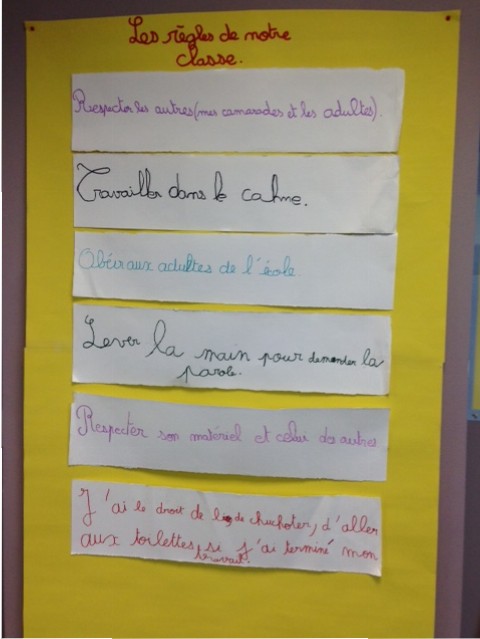 Les règles de notre
classe.
Respecter les autres (mes camarades et les adultes).
Travailler dans le calme.
Obéir aux adultes de l'école
Lever la main pour demander la
parole.
Respecter son matériel et celui des autres
J'ai le droit de de chuchoter, d'aller
aux toilettes si j'ai terminé mon
travail.